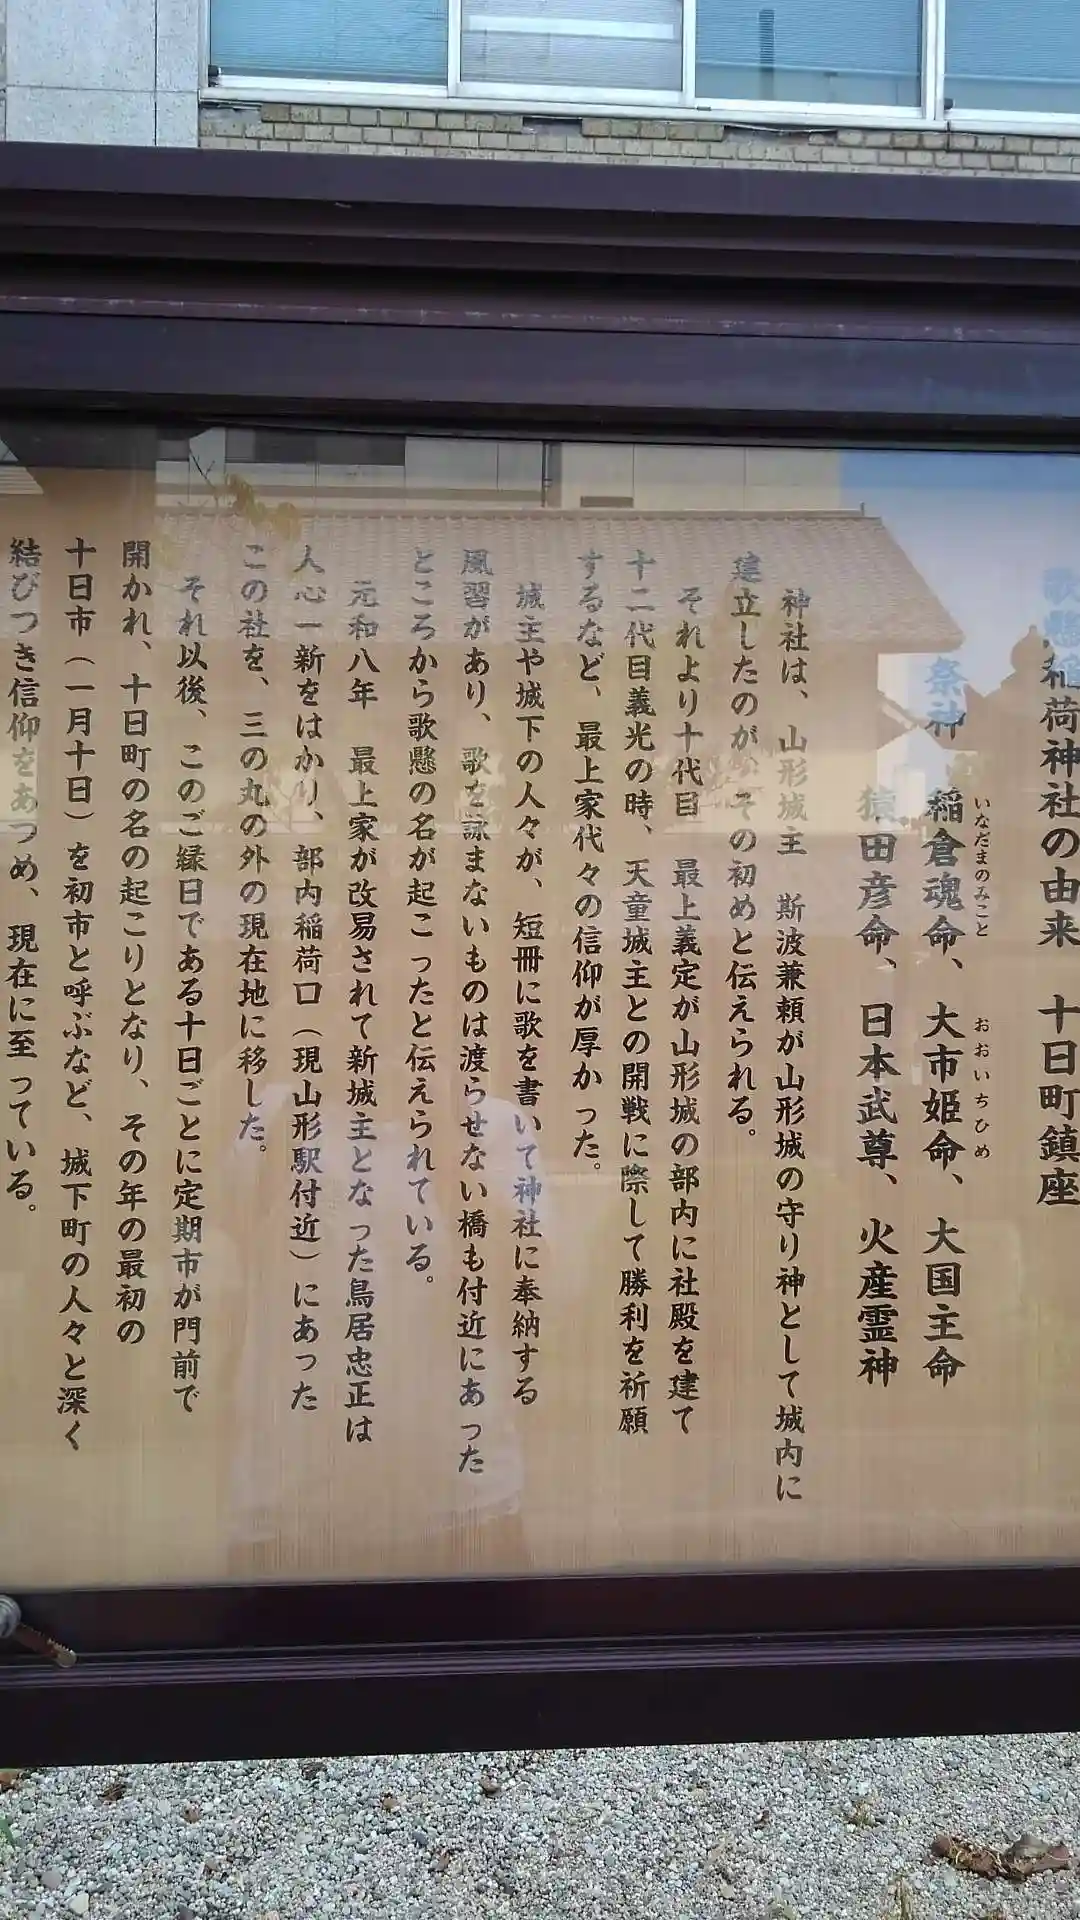 歌懸稲荷神社の由来　十日町鎮座
祭神　稲倉魂命、大市姫命、大国主命
いなだまのみこと　おおいちひめ
猿田彦命、日本武尊、火産霊神
神社は、山形城主　斯波兼頼が山形城の守り神として城内に
建立したのが、その初めと伝えられる。
それより十代目　最上義定が山形城の部内に社殿を建て
十二代目義光の時、天童城主との開戦に際して勝利を祈願
するなど、最上家代々の信仰が厚かった。
城主や城下の人々が、短冊に歌を書いて神社に奉納する
風習があり、歌を詠まないものは渡らせない橋も付近にあった
ところから歌懸の名が起こったと伝えられている。
元和八年　最上家が改易されて新城主となった鳥居忠正は
人心一新をはかり、部内稲荷口（現山形駅付近）にあった
この社を、三の丸の外の現在地に移した。
それ以後、このご縁日である十日ごとに定期市が門前で
開かれ、十日町の名の起こりとなり、その年の最初の
十日市（一月十日）を初市と呼ぶなど、城下町の人々と深く
結びつき信仰をあつめ、現在に至っている。